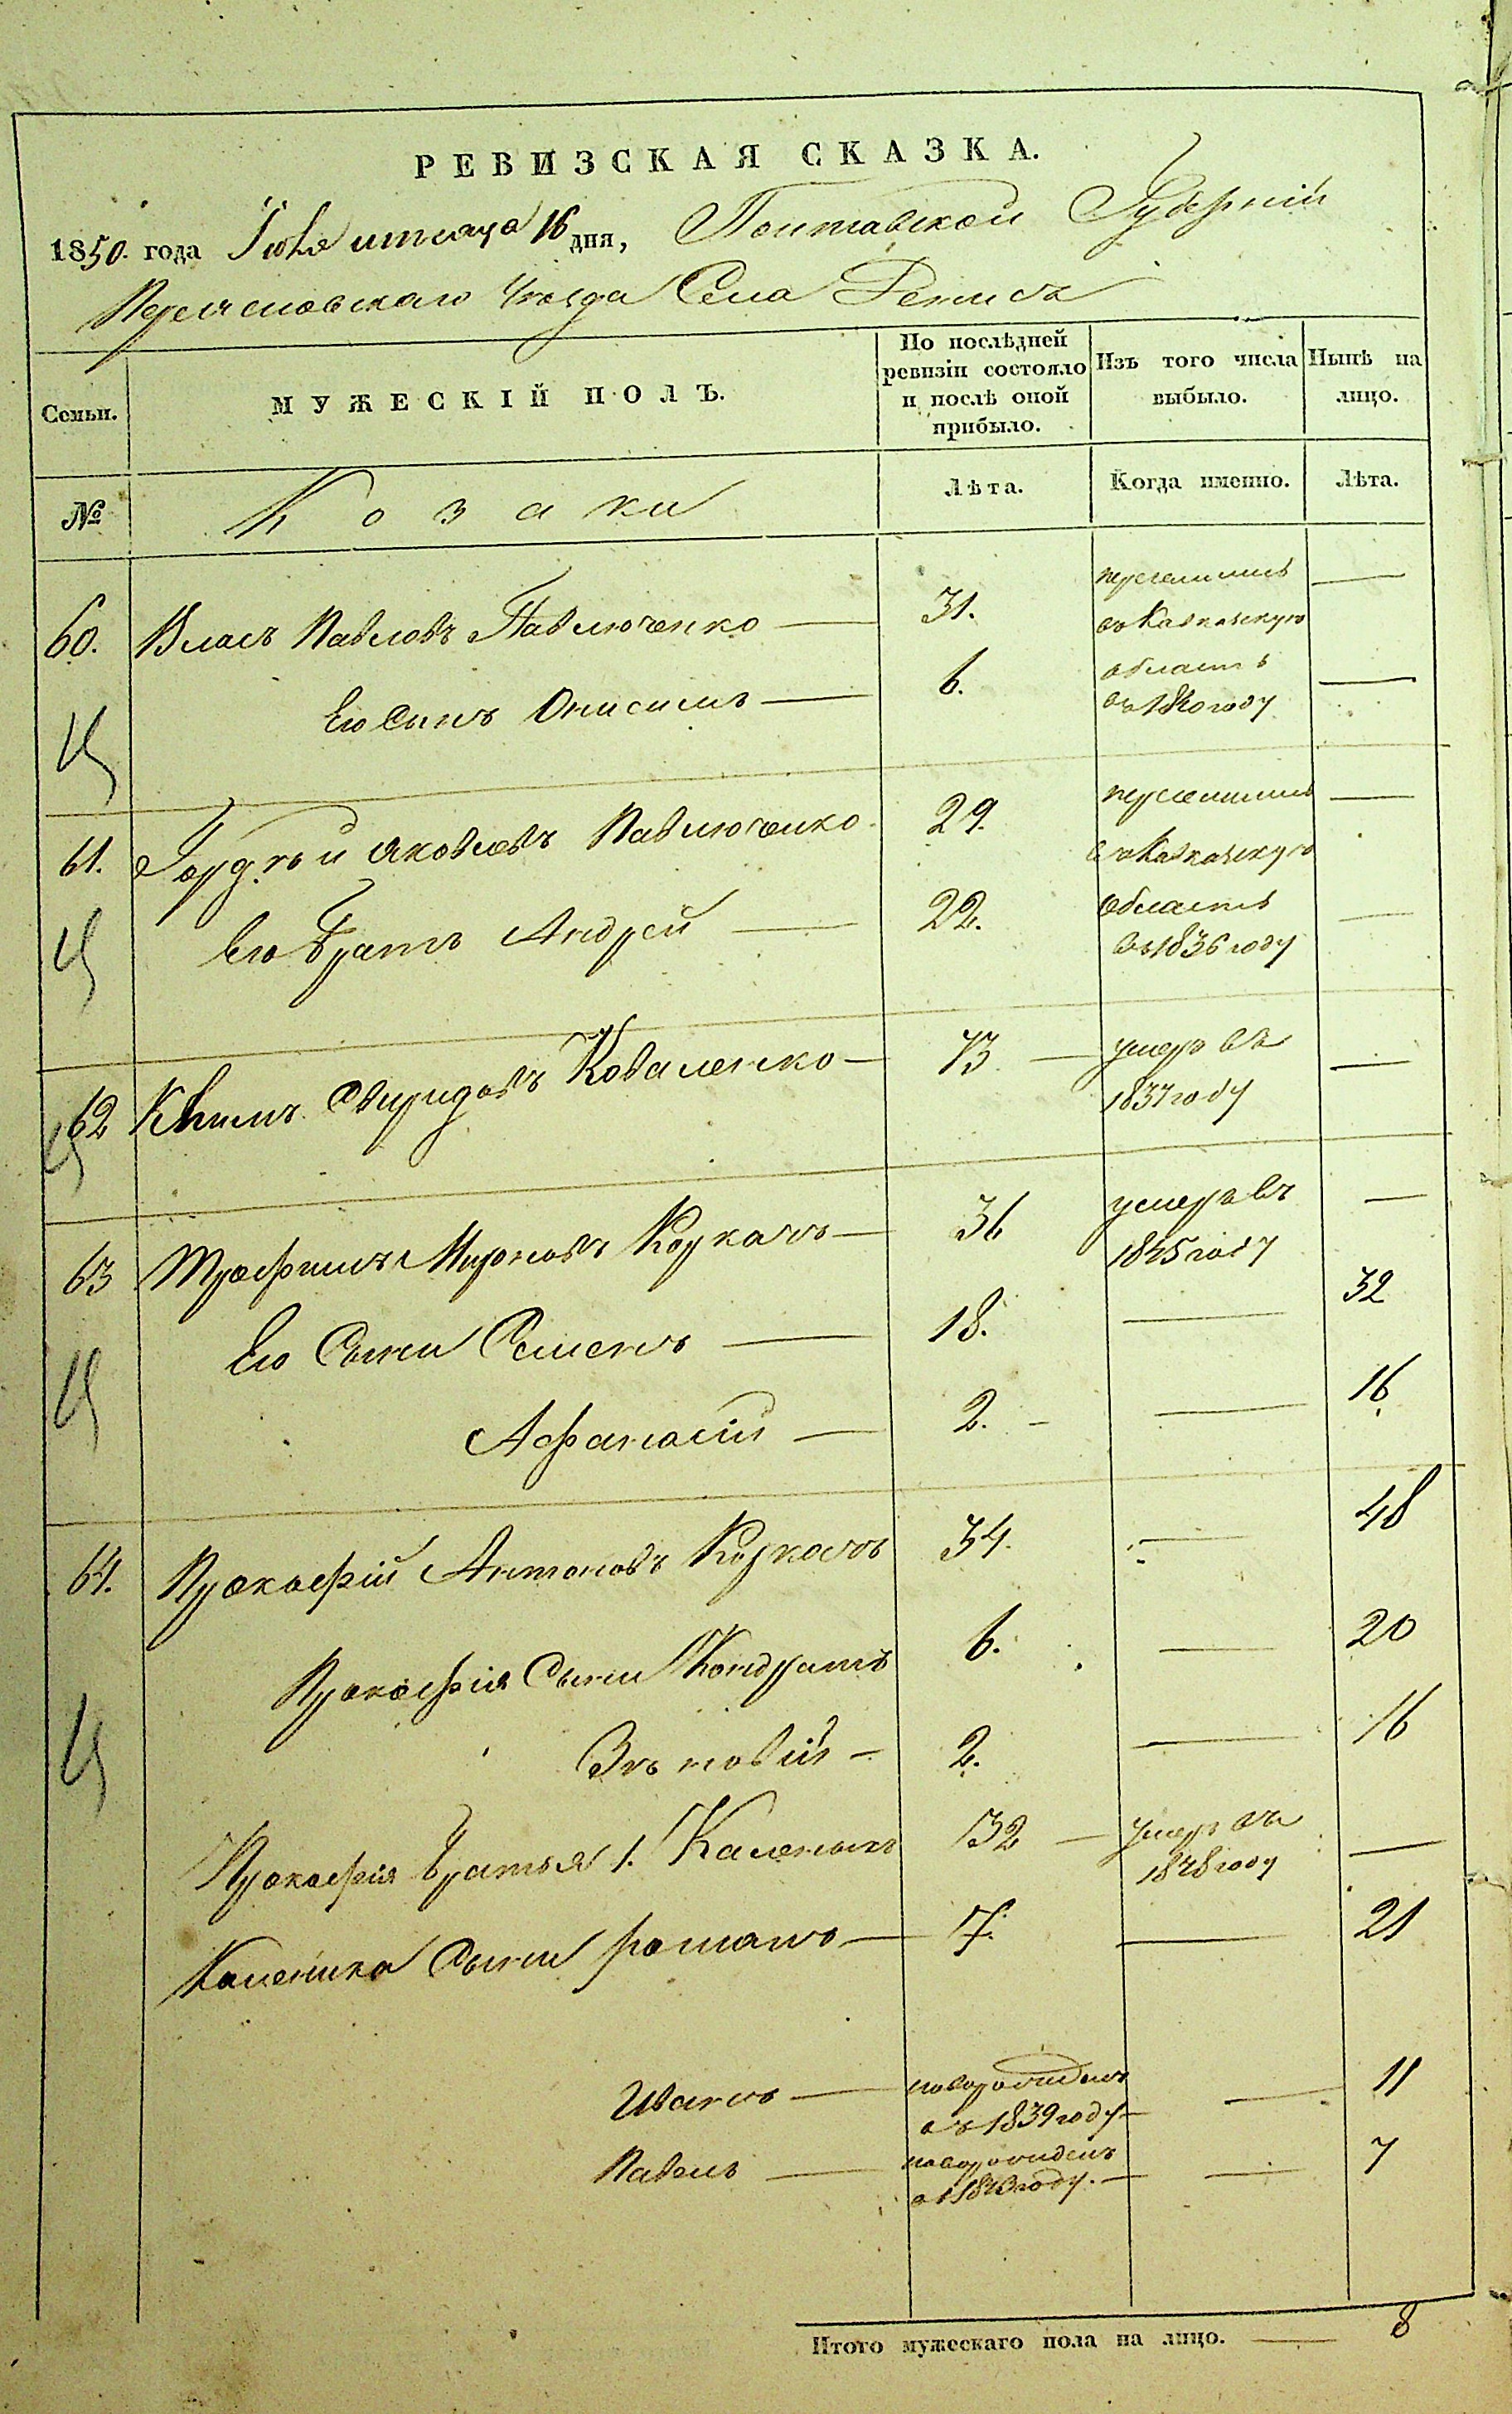 РЕВИЗСКАЯ СКАЗКА.
1850. года Іюля мѣсяца 16 дня, Полтавской Губерніи
Переяславскаго Уѣзда Села
Семьи.
МУЖЕСКІЙ ПОЛЪ.
По послѣдней ревизіи состояло и послѣ оной прибыло.
Изъ того числа выбыло.
Нынѣ на лицо.
№
Козаки
Лѣта.
Когда именно.
Лѣта.
60. Власъ Павловъ Павлюченко — 31. переселились —
въ Кавказскую
Его Сынъ Онисимъ — 6. область —
въ 1840 году
61. Гордѣй Яковлевъ Павлюченко 29. переселились —
въ Кавказскую
Его Братъ Андрей — 22. область —
въ 1836 году
62 Климъ Свиридовъ Коваленко — 73 — умеръ въ —
1837 году
63 Трофимъ Мироновъ Коркачъ — 36 умеръ въ —
1845 году
Его Сыни Семенъ — 18. — 32
Афанасій — 2. — — 16
64. Прокофій Антоновъ Коркачъ 34. — 48
Прокофія Сыни Кондратъ 6. — 20
Зѣновій — 2. — 16
Прокофія Братья 1. Каленикъ 32 — умеръ въ —
1848 году
Каленика Сыни Романъ — 7. — 21
Иванъ — новорожденъ — 11
въ 1839 году —
Павелъ — новорожденъ — 7
въ 1843 году. —
Итого мужескаго пола на лицо. — 8